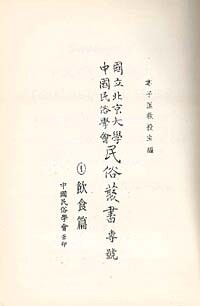 婁子匡教授主編
國立北京大學
中國民俗學會
民俗叢書專號
①飲食篇
中國民俗學會景印